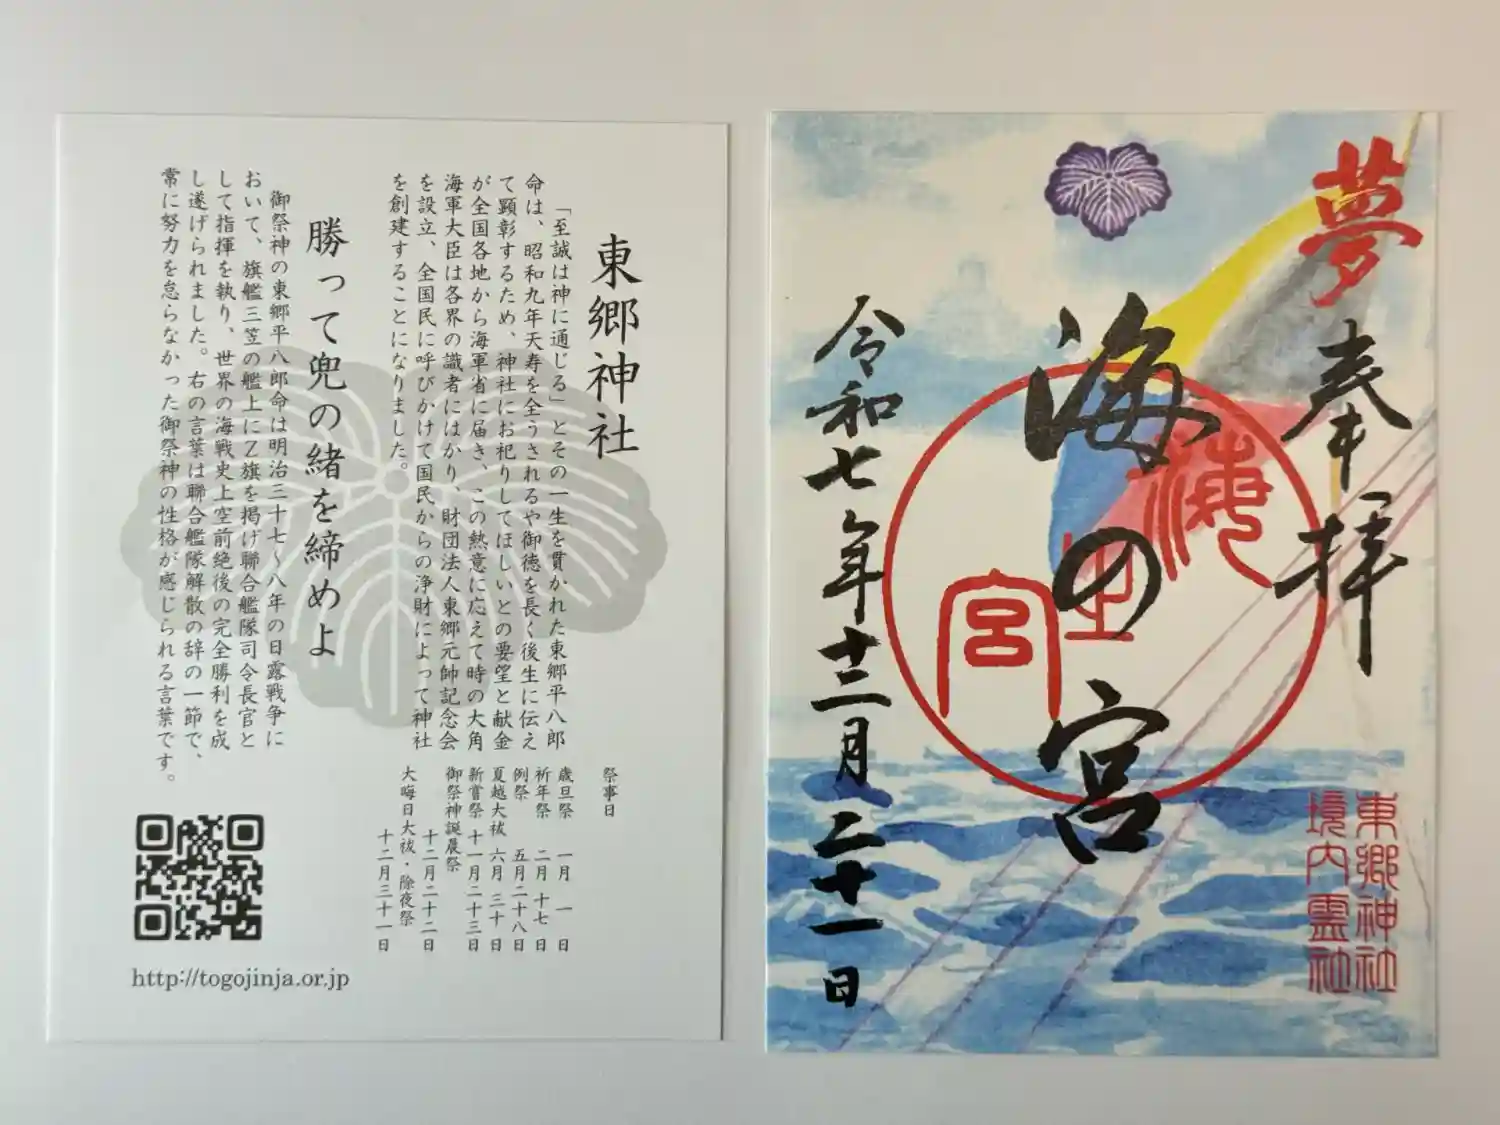 東郷神社
「至誠は神に通じる」とその一生を貫かれた東郷平八郎
命は、昭和九年天寿を全うされるや御徳を長く後生に伝え
て顕彰するため、神社にお祀りしてほしいとの要望と献金
が全国各地から海軍省に届き、この熱意に応えて時の大角
海軍大臣は各界の識者にはかり、財団法人東郷元帥記念会
を設立、全国民に呼びかけて国民からの浄財によって神社
を創建することになりました。
勝って兜の緒を締めよ
御祭神の東郷平八郎命は明治三十七～八年の日露戦争に
おいて、旗艦三笠の艦上にZ旗を掲げ聯合艦隊司令長官と
して指揮を執り、世界の海戦史上空前絶後の完全勝利を成
し遂げられました。右の言葉は聯合艦隊解散の辞の一節で、
常に努力を怠らなかった御祭神の性格が感じられる言葉です。
祭事日
歳旦祭 一月 一日
祈年祭 二月 十七日
例祭 五月二十八日
夏越大祓 六月 三十日
新嘗祭 十一月二十三日
御祭神誕辰祭
十二月二十二日
大晦日大祓・除夜祭
十二月三十一日
http://togojinja.or.jp
夢
奉拝
海の宮
海之宮
令和七年十二月二十一日
東郷神社
境内霊社